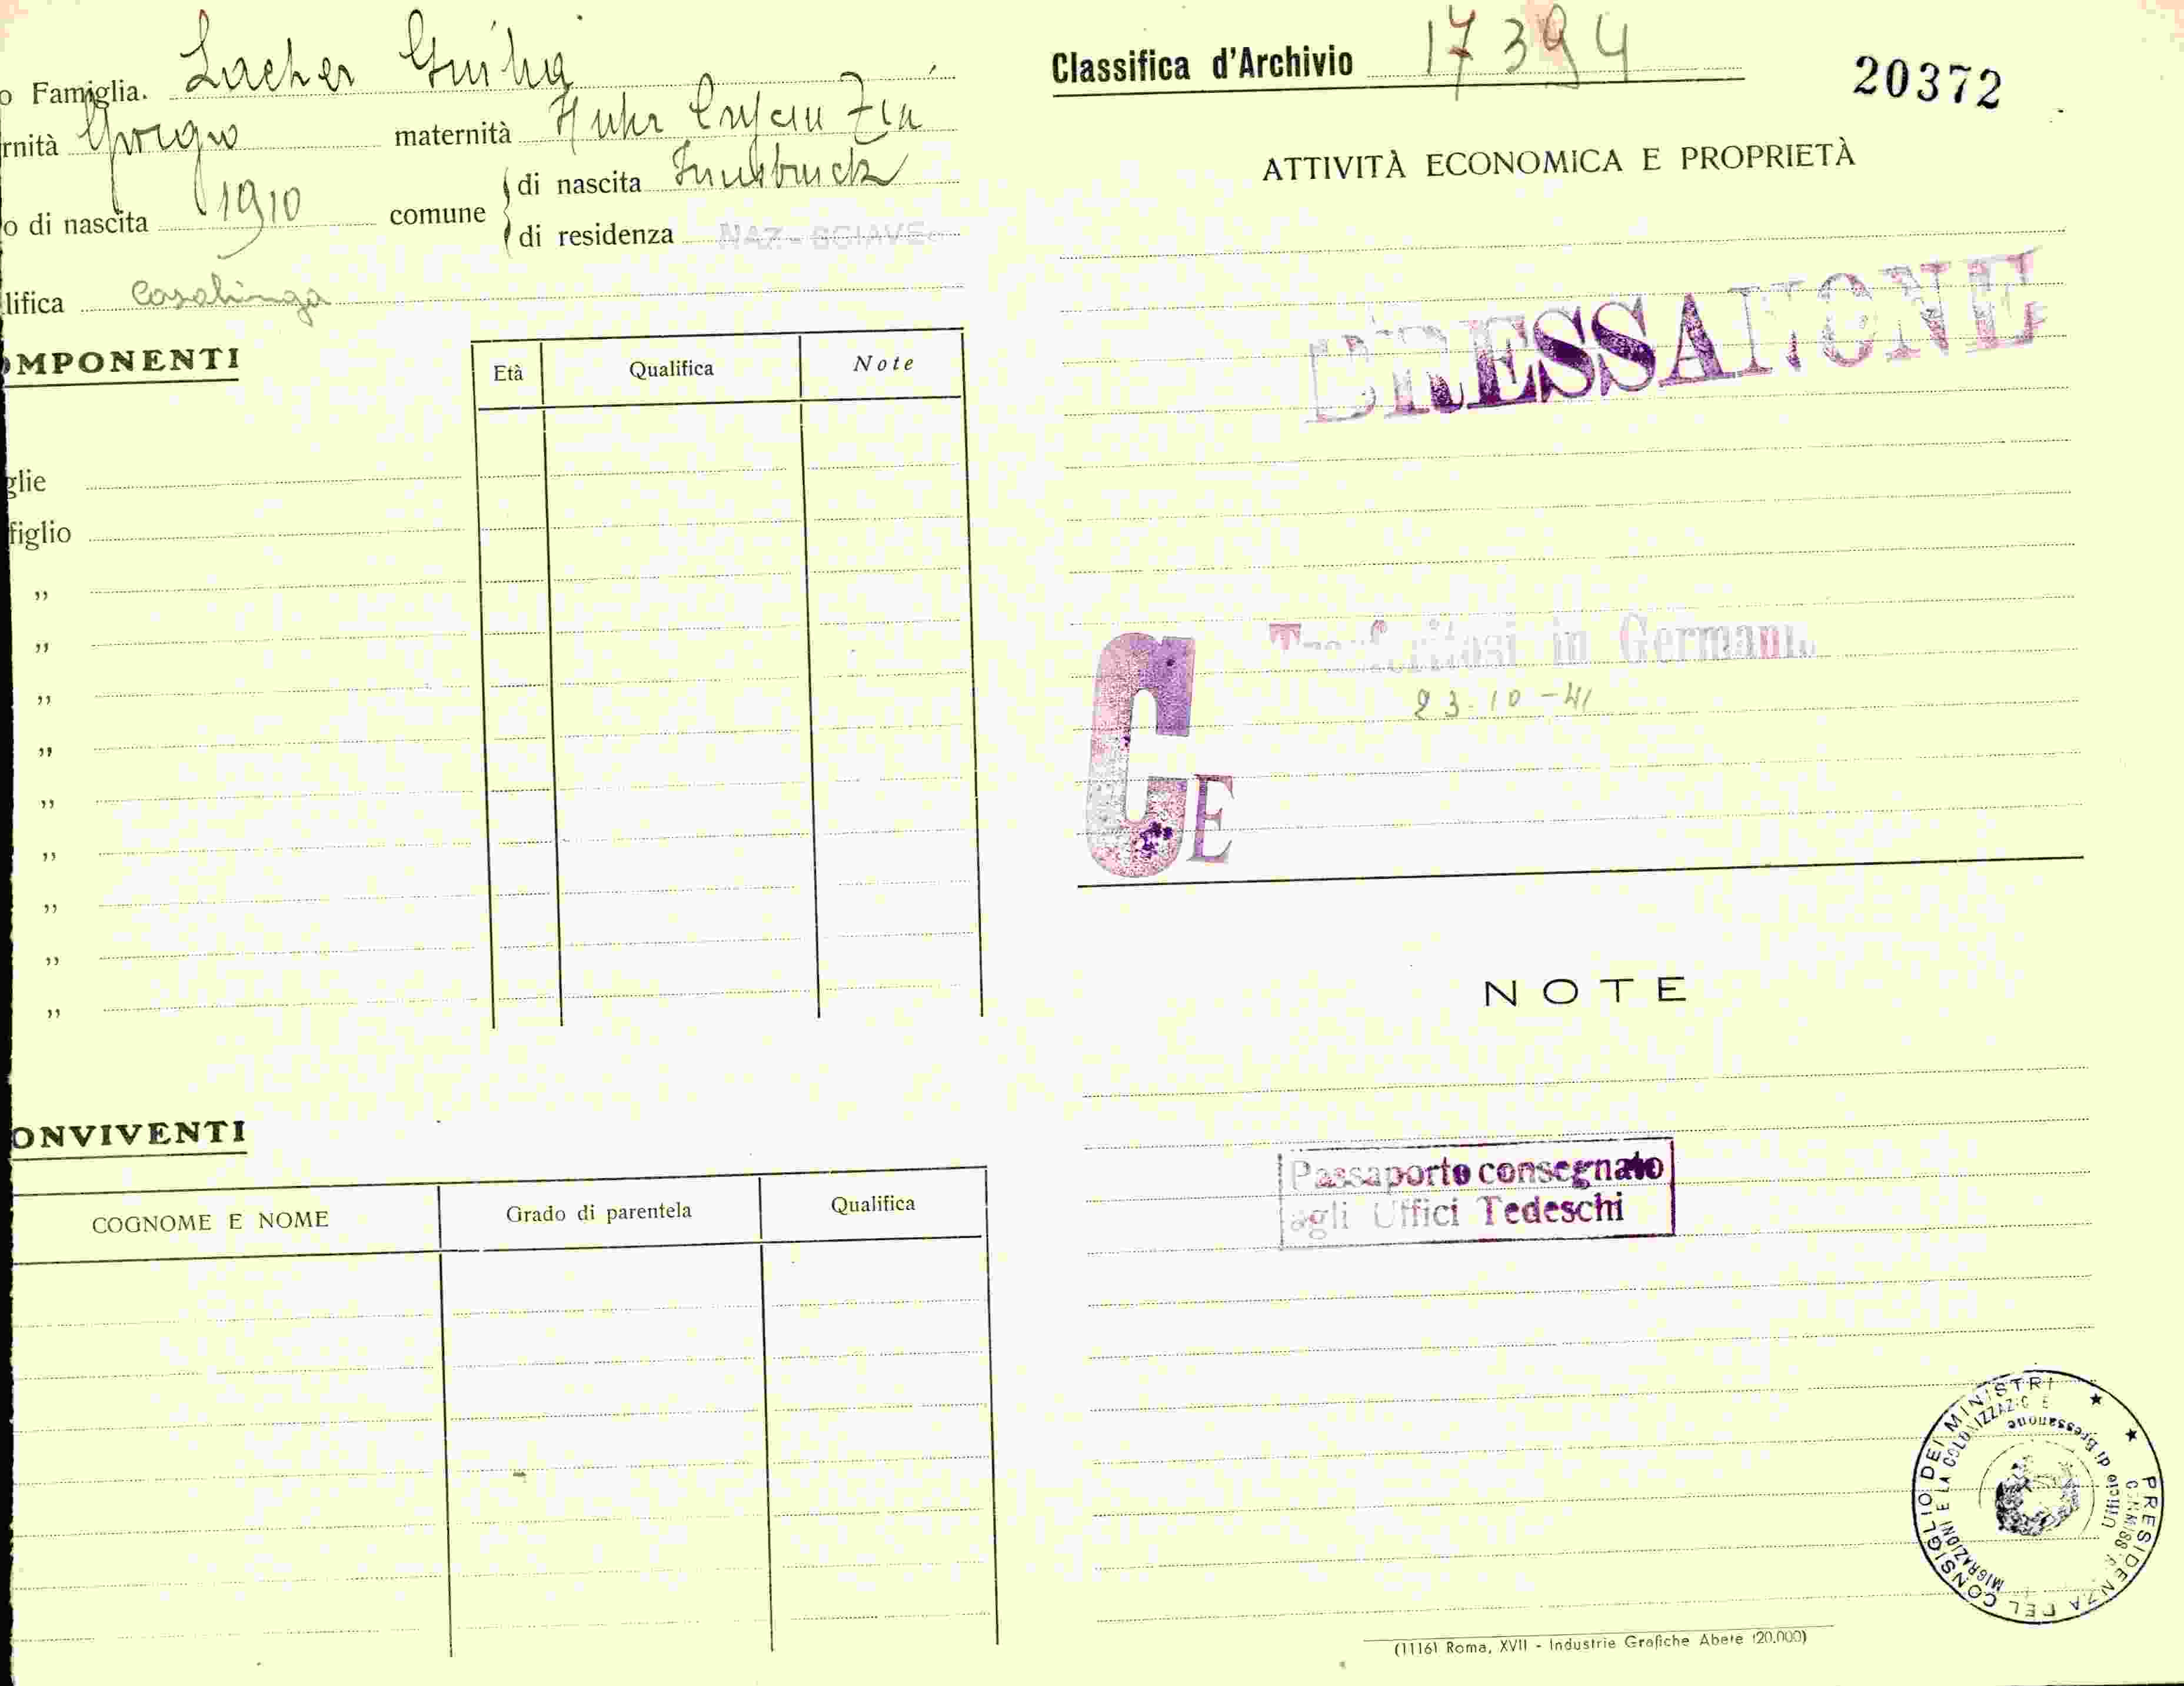 o Famiglia. Lacher Giulia
rnità Giorgio maternità
o di nascita 1910 comune di nascita Innsbruck
di residenza NAZ-SCIAVES
lifica Casalinga
OMPONENTI
Età Qualifica Note
glie
figlio
„
„
„
„
„
„
„
„
„
ONVIVENTI
COGNOME E NOME Grado di parentela Qualifica
Classifica d'Archivio 17394
20372
ATTIVITÀ ECONOMICA E PROPRIETÀ
BRESSANONE
Trasferitosi in Germania
23-10-41
GE
NOTE
Passaporto consegnato
agli Uffici Tedeschi
PRESIDENZA DEL CONSIGLIO DEI MINISTRI
MIGRAZIONI E LA COLONIZZAZIONE
Ufficio di Bressanone
(1116) Roma, XVII - Industrie Grafiche Abete (20.000)